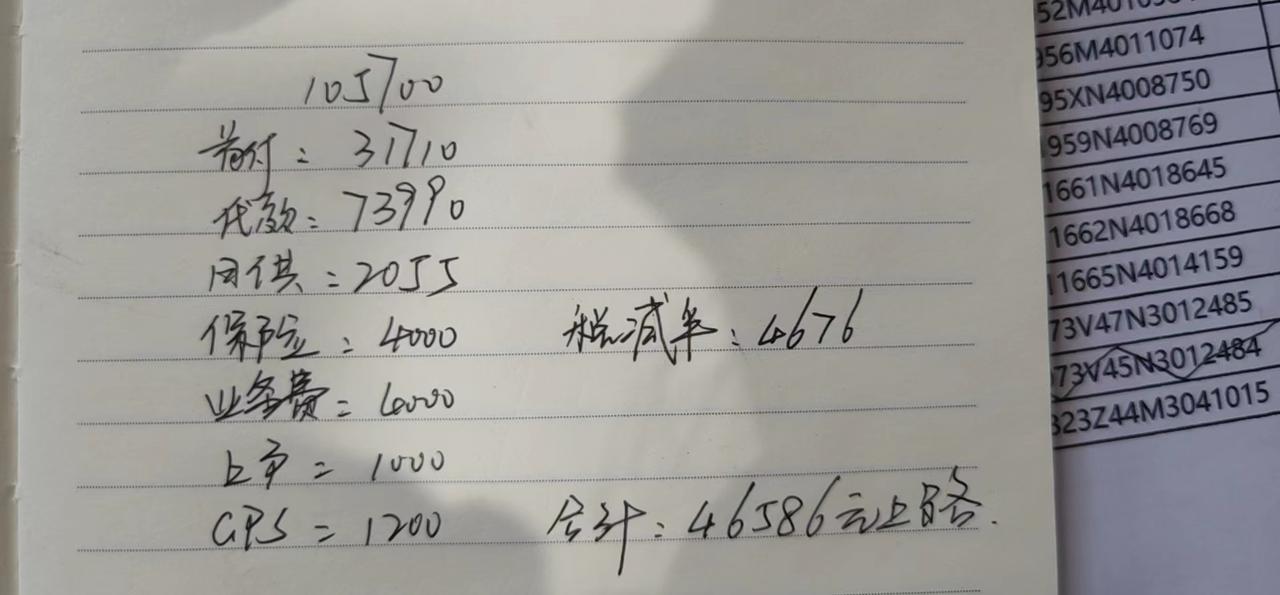 105700
首付：31710
代款：73990
月供：2055
保险：4000 税减半：4676
业务费：4000
上户：1000
GPS＝1200 合计：46586元上路.
956M4011074
95XN4008750
959N4008769
1661N4018645
1662N4018668
11665N4014159
73V47N3012485
73V45N3012484
323Z44M3041015